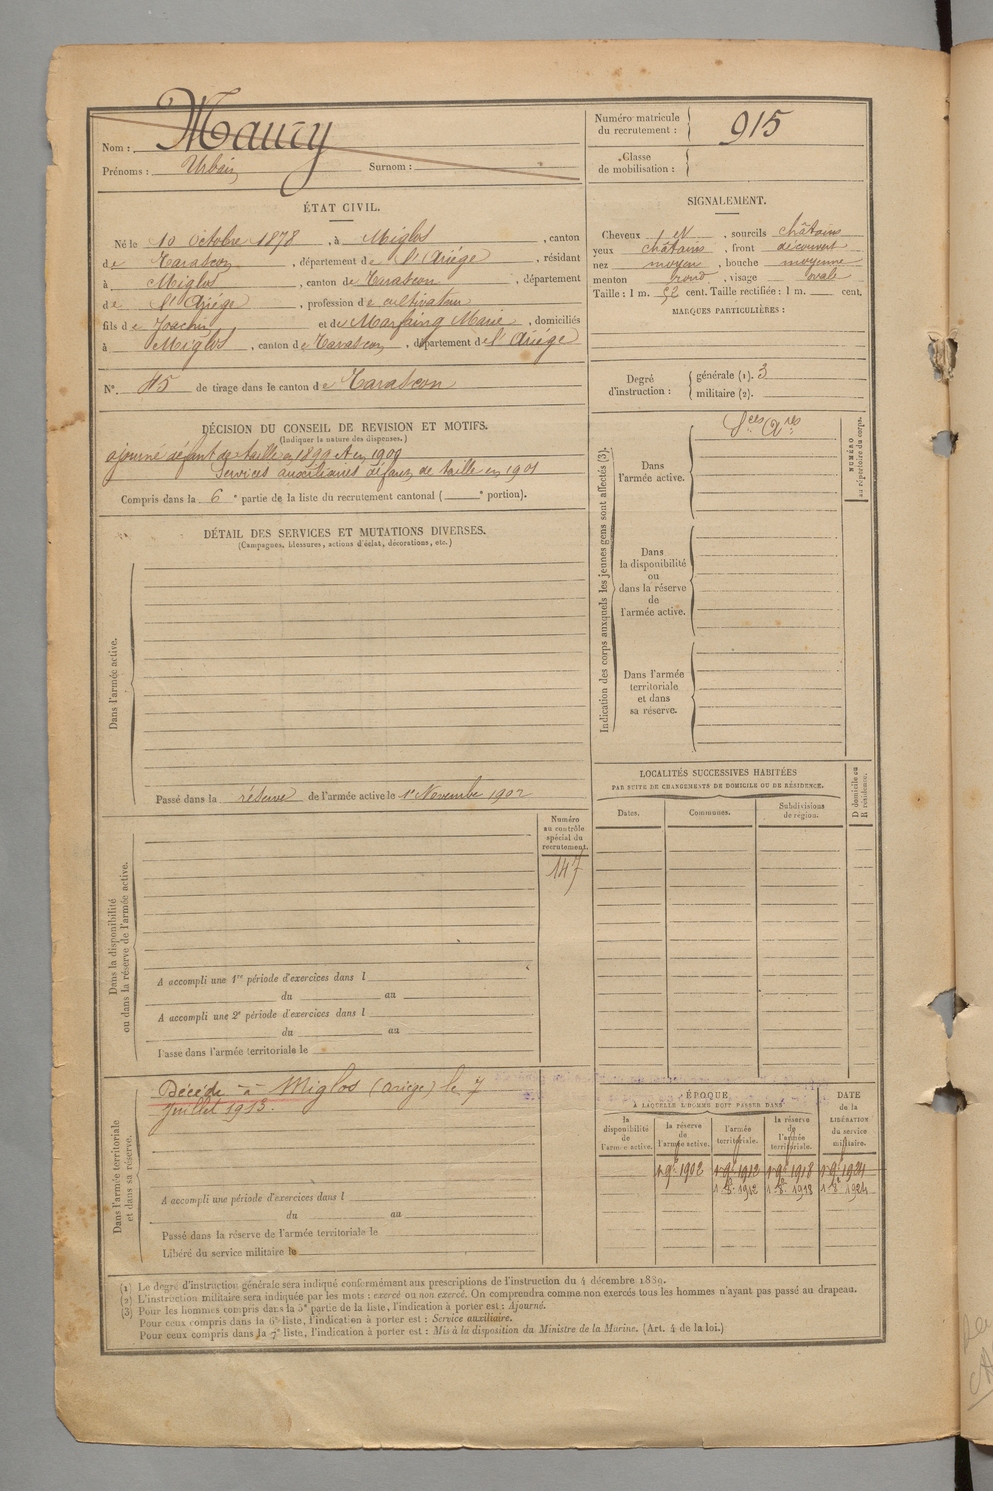 Nom : Maury
Prénoms : Urbain Surnom :
Numéro matricule du recrutement : 915
Classe de mobilisation :
ÉTAT CIVIL.
Né le 10 Octobre 1878, à Miglos, canton
de Tarascon, département de l'Ariége, résidant
à Miglos, canton de Tarascon, département
de l'Ariége, profession de cultivateur
fils de Joachin et de Marfaing Marie, domiciliés
à Miglos, canton de Tarascon, département de l'Ariége
N° 45 de tirage dans le canton de Tarascon
SIGNALEMENT.
Cheveux et sourcils châtains
yeux châtains, front découvert
nez moyen, bouche moyenne
menton rond, visage ovale
Taille : 1 m. 52 cent. Taille rectifiée : 1 m. cent.
MARQUES PARTICULIÈRES :
Degré d'instruction : générale (1). 3
militaire (2).
DÉCISION DU CONSEIL DE REVISION ET MOTIFS.
(Indiquer la nature des dispenses.)
ajourné défaut de taille en 1899 et en 1900
Services auxiliaires défaut de taille en 1901
Compris dans la 6e partie de la liste du recrutement cantonal ( e portion).
DÉTAIL DES SERVICES ET MUTATIONS DIVERSES.
(Campagnes, blessures, actions d'éclat, décorations, etc.)
Dans l'armée active.
Passé dans la réserve de l'armée active le 1er Novembre 1902
Dans la disponibilité
ou dans la réserve de l'armée active.
Numéro
au contrôle
spécial du
recrutement.
147
A accompli une 1re période d'exercices dans l
du au
A accompli une 2e période d'exercices dans l
du au
Passé dans l'armée territoriale le
Dans l'armée territoriale
et dans sa réserve.
Décédé à Miglos (Ariège) le 7
juillet 1913.
A accompli une période d'exercices dans l
du au
Passé dans la réserve de l'armée territoriale le
Libéré du service militaire le
Indication des corps auxquels les jeunes gens sont affectés (3).
NUMÉRO
au répertoire du corps.
Dans
l'armée active.
Sces Ares
Dans
la disponibilité
ou
dans la réserve
de
l'armée active.
Dans l'armée
territoriale
et dans
sa réserve.
LOCALITÉS SUCCESSIVES HABITÉES
PAR SUITE DE CHANGEMENTS DE DOMICILE OU DE RÉSIDENCE.
D domicile ou
R résidence.
Dates. Communes. Subdivisions de région.
ÉPOQUE
À LAQUELLE L'HOMME DOIT PASSER DANS
DATE
de la
LIBÉRATION
du service
militaire.
la disponibilité de l'armée active.
la réserve de l'armée active.
l'armée territoriale.
la réserve de l'armée territoriale.
1 9bre 1902 1 9bre 1912 1 9bre 1918 1 9bre 1924
1912 1918 1924
(1) Le degré d'instruction générale sera indiqué conformément aux prescriptions de l'instruction du 4 décembre 1889.
(2) L'instruction militaire sera indiquée par les mots : exercé ou non exercé. On comprendra comme non exercés tous les hommes n'ayant pas passé au drapeau.
(3) Pour les hommes compris dans la 5e partie de la liste, l'indication à porter est : Ajourné.
Pour ceux compris dans la 6e liste, l'indication à porter est : Service auxiliaire.
Pour ceux compris dans la 7e liste, l'indication à porter est : Mis à la disposition du Ministre de la Marine. (Art. 4 de la loi.)